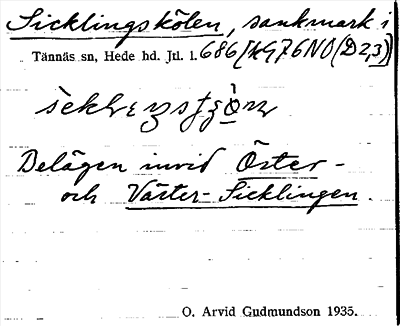 Sicklingskölen, sankmark i
Tännäs sn, Hede hd. Jtl. l. 686[hG76NO(D2,3)]
Belägen invid Öster-
och Väster-Sicklingen.
O. Arvid Gudmundson 1935.